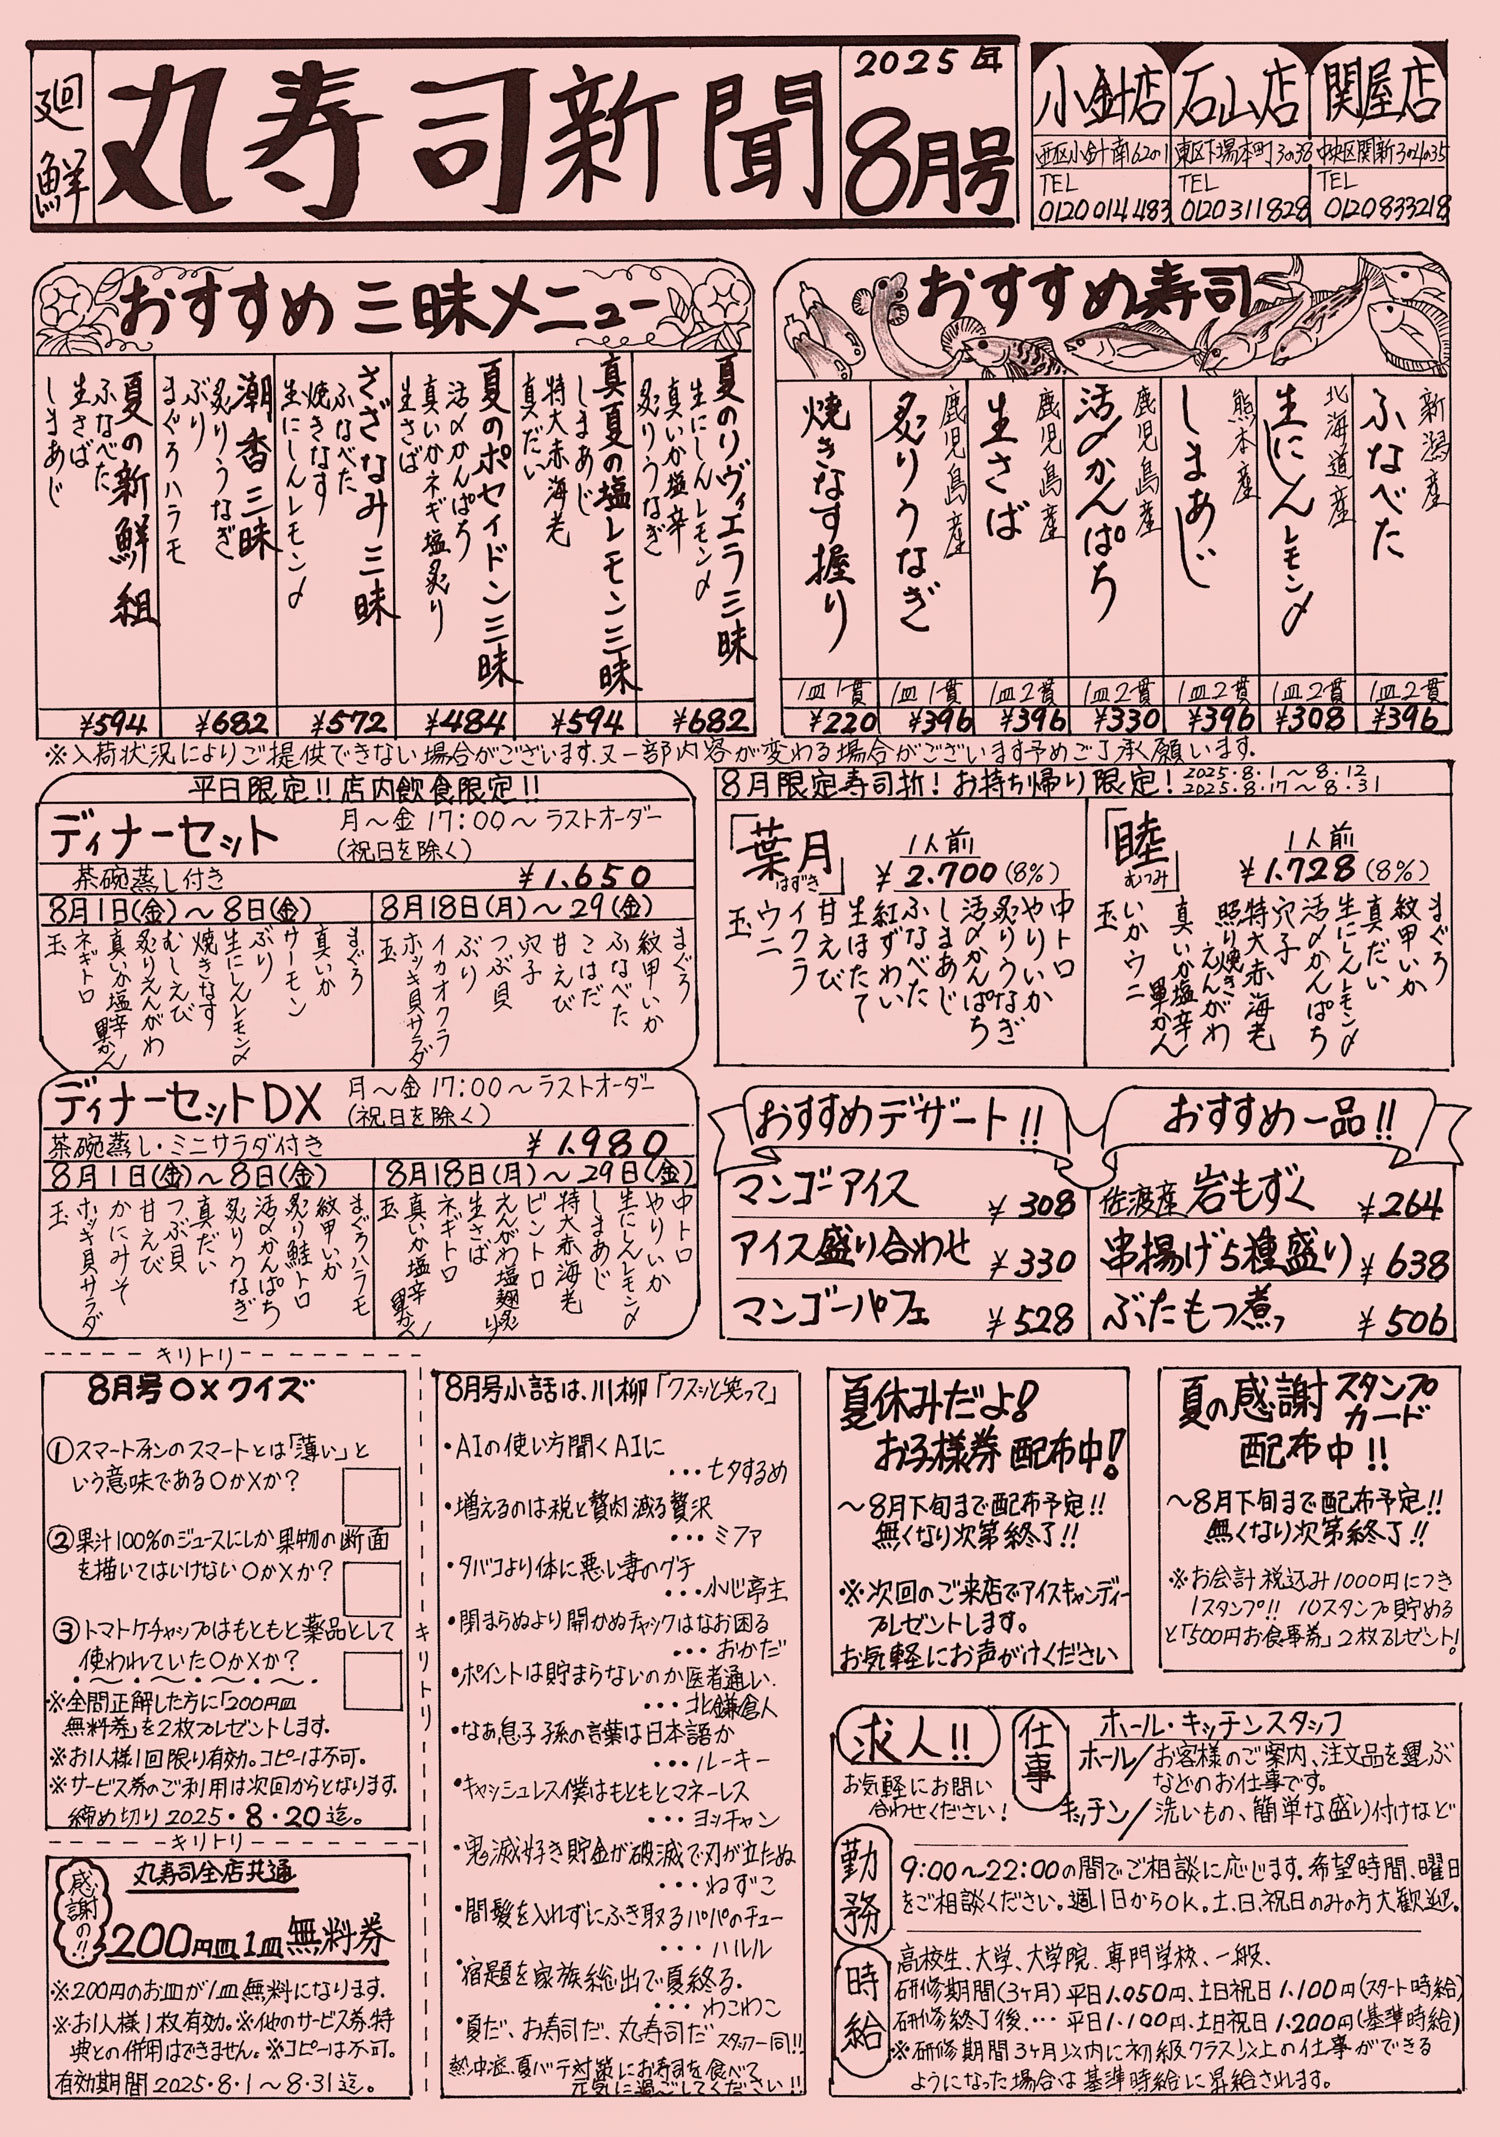 廻鮮
丸寿司新聞
2025年
8月号
小針店
西区小針南62の1
TEL
0120014483
石山店
東区下場本町3の38
TEL
0120311828
関屋店
中央区関新3の4の35
TEL
0120833218
おすすめ三昧メニュー
夏のリヴィエラ三昧
生にしんレモン〆
真いか塩辛
炙りうなぎ
¥682
真夏の塩レモン三昧
しまあじ
特大赤海老
真だい
¥594
夏のポセイドン三昧
活〆かんぱち
真いかネギ塩炙り
生さば
¥484
さざなみ三昧
ふなべた
焼きなす
生にしんレモン〆
¥572
潮香三昧
炙りうなぎ
ぶり
まぐろハラモ
¥682
夏の新鮮組
ふなべた
生さば
しまあじ
¥594
おすすめ寿司
新潟産
ふなべた
1皿2貫
¥396
北海道産
生にしんレモン〆
1皿2貫
¥308
熊本産
しまあじ
1皿2貫
¥396
鹿児島産
活〆かんぱち
1皿2貫
¥330
鹿児島産
生さば
1皿2貫
¥396
鹿児島産
炙りうなぎ
1皿1貫
¥396
焼きなす握り
1皿1貫
¥220
※入荷状況によりご提供できない場合がございます.又一部内容が変わる場合がございます予めご了承願います.
平日限定!!店内飲食限定!!
ディナーセット
月〜金17:00〜ラストオーダー
(祝日を除く)
茶碗蒸し付き
¥1.650
8月1日(金)〜8日(金)
まぐろ
真いか
サーモン
ぶり
生にしんレモン〆
焼きなす
むしえび
炙りえんがわ
真いか塩辛軍かん
ネギトロ
玉
8月18日(月)〜29(金)
まぐろ
紋甲いか
ふなべた
こはだ
甘えび
穴子
つぶ貝
ぶり
イカオクラ
ホッキ貝サラダ
玉
ディナーセットDX
月〜金17:00〜ラストオーダー
(祝日を除く)
茶碗蒸し・ミニサラダ付き
¥1.980
8月1日(金)〜8日(金)
まぐろハラモ
紋甲いか
炙り鮭トロ
活〆かんぱち
炙りうなぎ
真だい
つぶ貝
甘えび
かにみそ
ホッキ貝サラダ
玉
8月18日(月)〜29日(金)
中トロ
やりいか
生にしんレモン〆
しまあじ
特大赤海老
ビントロ
えんがわ塩麹炙り
生さば
ネギトロ
真いか塩辛軍かん
玉
8月限定寿司折!お持ち帰り限定!
2025.8.1〜8.12
2025.8.17〜8.31
「葉月」
はずき
1人前
¥2.700(8%)
中トロ
やりいか
炙りうなぎ
活〆かんぱち
しまあじ
ふなべた
紅ずわい
生ほたて
甘えび
イクラ
ウニ
玉
「睦」
むつみ
1人前
¥1.728(8%)
まぐろ
紋甲いか
真だい
生にしんレモン〆
活〆かんぱち
穴子
特大赤海老
照り焼きえんがわ
真いか塩辛軍かん
いかウニ
玉
おすすめデザート!!
マンゴーアイス
¥308
アイス盛り合わせ
¥330
マンゴーパフェ
¥528
おすすめ一品!!
佐渡産岩もずく
¥264
串揚げ5種盛り
¥638
ぶたもつ煮
¥506
キリトリ
8月号○×クイズ
①スマートフォンのスマートとは「薄い」と
いう意味である○か×か?
②果汁100%のジュースにしか果物の断面
を描いてはいけない○か×か?
③トマトケチャップはもともと薬品として
使われていた○か×か?
※全問正解した方に「200円皿
無料券」を2枚プレゼントします.
※お1人様1回限り有効。コピーは不可。
※サービス券のご利用は次回からとなります.
締め切り2025・8・20迄。
キリトリ
キリトリ
感謝の!!
丸寿司全店共通
200円皿1皿無料券
※200円のお皿が1皿無料になります.
※お1人様1枚有効。※他のサービス券.特
典との併用はできません。※コピーは不可.
有効期間2025・8・1〜8・31迄。
8月号小話は、川柳「クスッと笑って」
・AIの使い方聞くAIに
・・・七夕するめ
・増えるのは税と贅肉減る贅沢
・・・ミファ
・タバコより体に悪い妻のグチ
・・・小心亭主
・閉まらぬより開かぬチャックはなお困る
・・・おかだ
・ポイントは貯まらないのか医者通い.
・・・北鎌倉人
・なあ息子孫の言葉は日本語か
・・・ルーキー
・キャッシュレス僕はもともとマネーレス
・・・ヨッチャン
・鬼滅好き貯金が破滅で刃が立たぬ
・・・ねずこ
・間髪を入れずにふき取るパパのチュー
・・・ハルル
・宿題を家族総出で夏終る.
・・・わこわこ
・夏だ、お寿司だ、丸寿司だ スタッフ一同!!
熱中症、夏バテ対策にお寿司を食べて
元気に過ごしてください!!
夏休みだよ!
お子様券配布中!
〜8月下旬まで配布予定!!
無くなり次第終了!!
※次回のご来店でアイスキャンディー
プレゼントします。
お気軽にお声がけください
夏の感謝スタンプカード
配布中!!
〜8月下旬まで配布予定!!
無くなり次第終了!!
※お会計税込み1000円につき
1スタンプ!! 10スタンプ貯める
と「500円お食事券」2枚プレゼント!。
求人!!
お気軽にお問い
合わせください!
仕事
ホール・キッチンスタッフ
ホール/お客様のご案内、注文品を運ぶ
などのお仕事です。
キッチン/洗いもの、簡単な盛り付けなど
勤務
9:00〜22:00の間でご相談に応じます.希望時間、曜日
をご相談ください。週1日からOK.土、日、祝日のみの方大歓迎。
時給
高校生、大学、大学院.専門学校、一般.
研修期間(3ヶ月)平日1.050円、土日祝日1.100円(スタート時給)
研修終了後.…平日1.100円、土日祝日1.200円(基準時給)
※研修期間3ヶ月以内に初級クラス以上の仕事ができる
ようになった場合は基準時給に昇給されます。